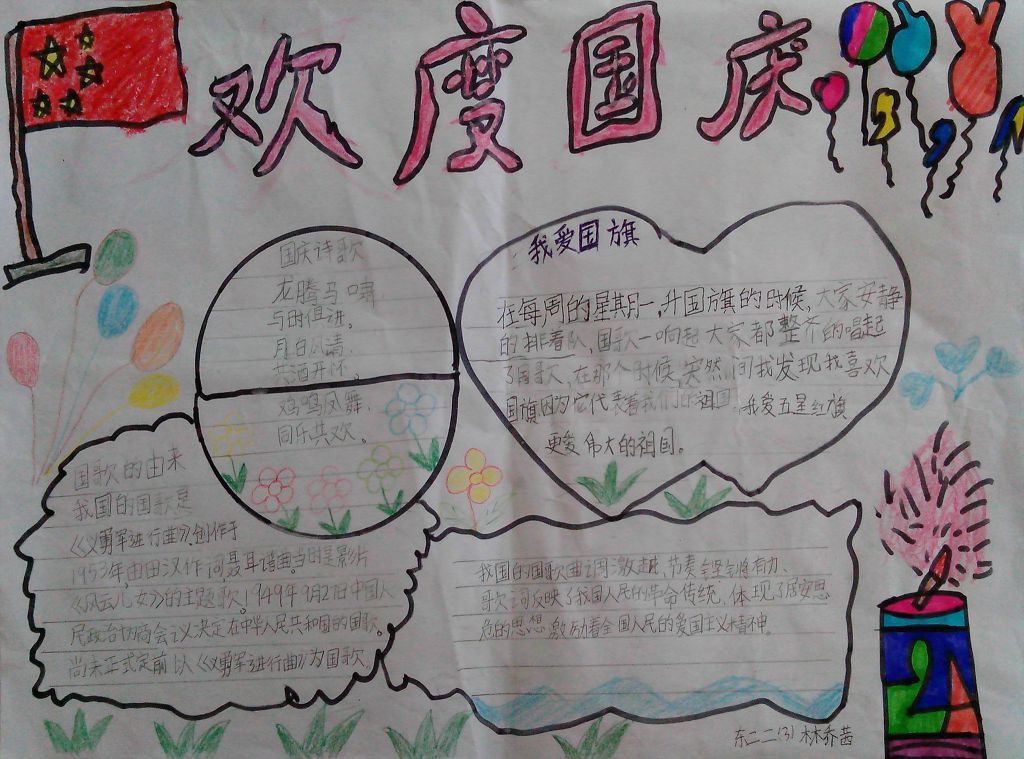 欢度国庆
国庆诗歌
龙腾马啸，
与时俱进。
月白风清，
共酒开怀。
鸡鸣凤舞，
同乐共欢。
我爱国旗
在每周的星期一，升国旗的时候，大家安静
的排着队，国歌一响起大家都整齐的唱起
了国歌，在那个时候，突然间我发现我喜欢
国旗因为它代表着我们的祖国。我爱五星红旗
更爱伟大的祖国。
国歌的由来
我国的国歌是
《义勇军进行曲》，创作于
1953年由田汉作词聂耳谱曲。当时是影片
《风云儿女》的主题歌。1949年9月21日中国人
民政治协商会议决定在中华人民共和国的国歌。
尚未正式定前以《义勇军进行曲》为国歌。
我国的国歌曲调激越，节奏坚有力、
歌词反映了我国人民的革命传统，体现了居安思
危的思想激励着全国人民的爱国主义精神。
东二二(3) 林乔茜